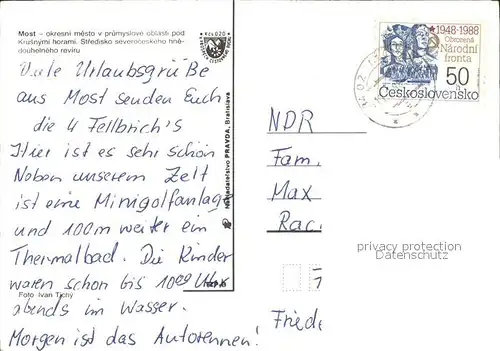 Most – okresní město v průmyslové oblasti pod
Krušnými horami. Středisko severočeského hně-
douhelného revíru
Viele Urlaubsgrüße
aus Most senden Euch
die 4 Fellbrich's
Hier ist es sehr schön
Neben unserem Zelt
ist eine Minigolfanlage
und 100m weiter ein
Thermalbad. Die Kinder
waren schon bis 10⁰⁰ Uhr
abends im Wasser.
Morgen ist das Autorennen!
Foto Ivan Tichý
Nakladatelstvo PRAVDA, Bratislava
1948-1988
Obrozená
Národní
fronta
50 h
Československo
NDR
Fam.
Max
Rac
Friede
privacy protection
Datenschutz